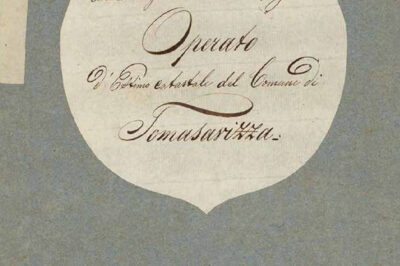 Operato
d'Estimo catastale del Comune di
Tomasarizza.